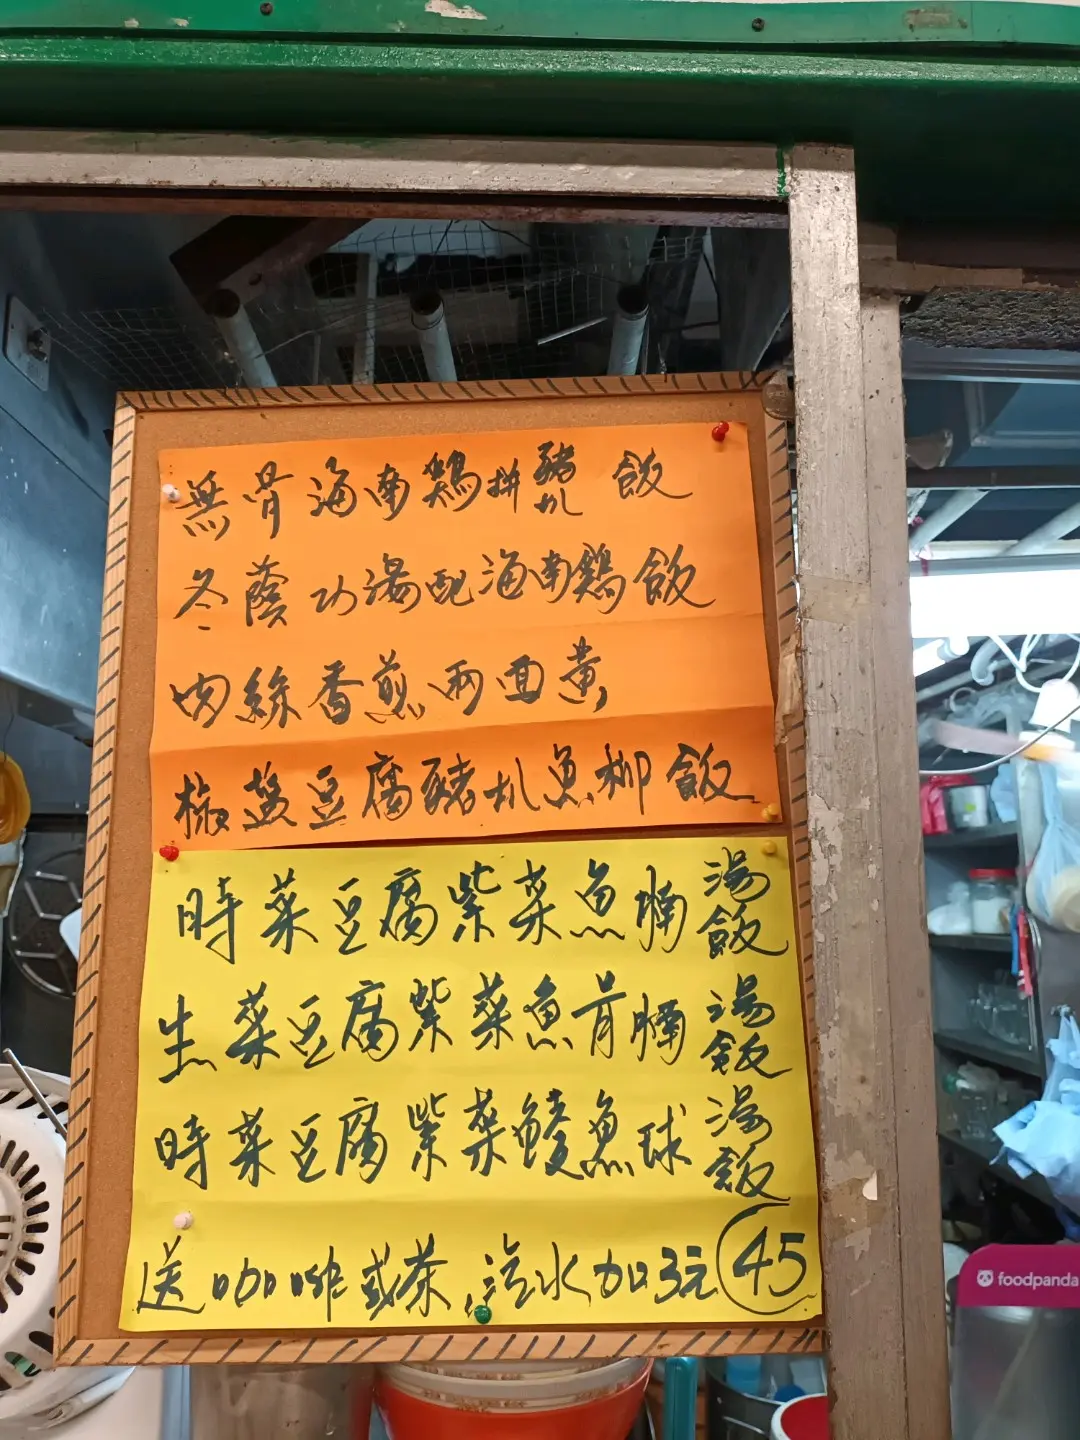 無骨海南鷄拼豬扒飯
冬蔭功湯配海南鷄飯
肉絲香煎兩面黃
椒鹽豆腐豬扒魚柳飯
時菜豆腐紫菜魚腩湯飯
生菜豆腐紫菜魚骨腩湯飯
時菜豆腐紫菜鯪魚球湯飯
送咖啡或茶,汽水加3元 45
foodpanda